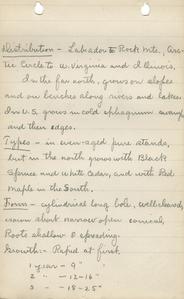 Distribution - Labrador to Rock Mts., Arc-
tic Circle to W. Virginia and Illinois,
In the far north, grows on slopes
and on benches along rivers and lakes.
In U.S. grows in cold sphagnum swamps
and their edges.
Types - in even-aged pure stands,
but in the north grows with Black
Spruce and White Cedar, and with Red
Maple in the South.
Form - cylindrical long bole, well cleared,
crown short narrow open conical,
Roots shallow & spreading.
Growth:- Rapid at first.
1 year - 9"
2 " - 12-16"
3 " - 18-25"